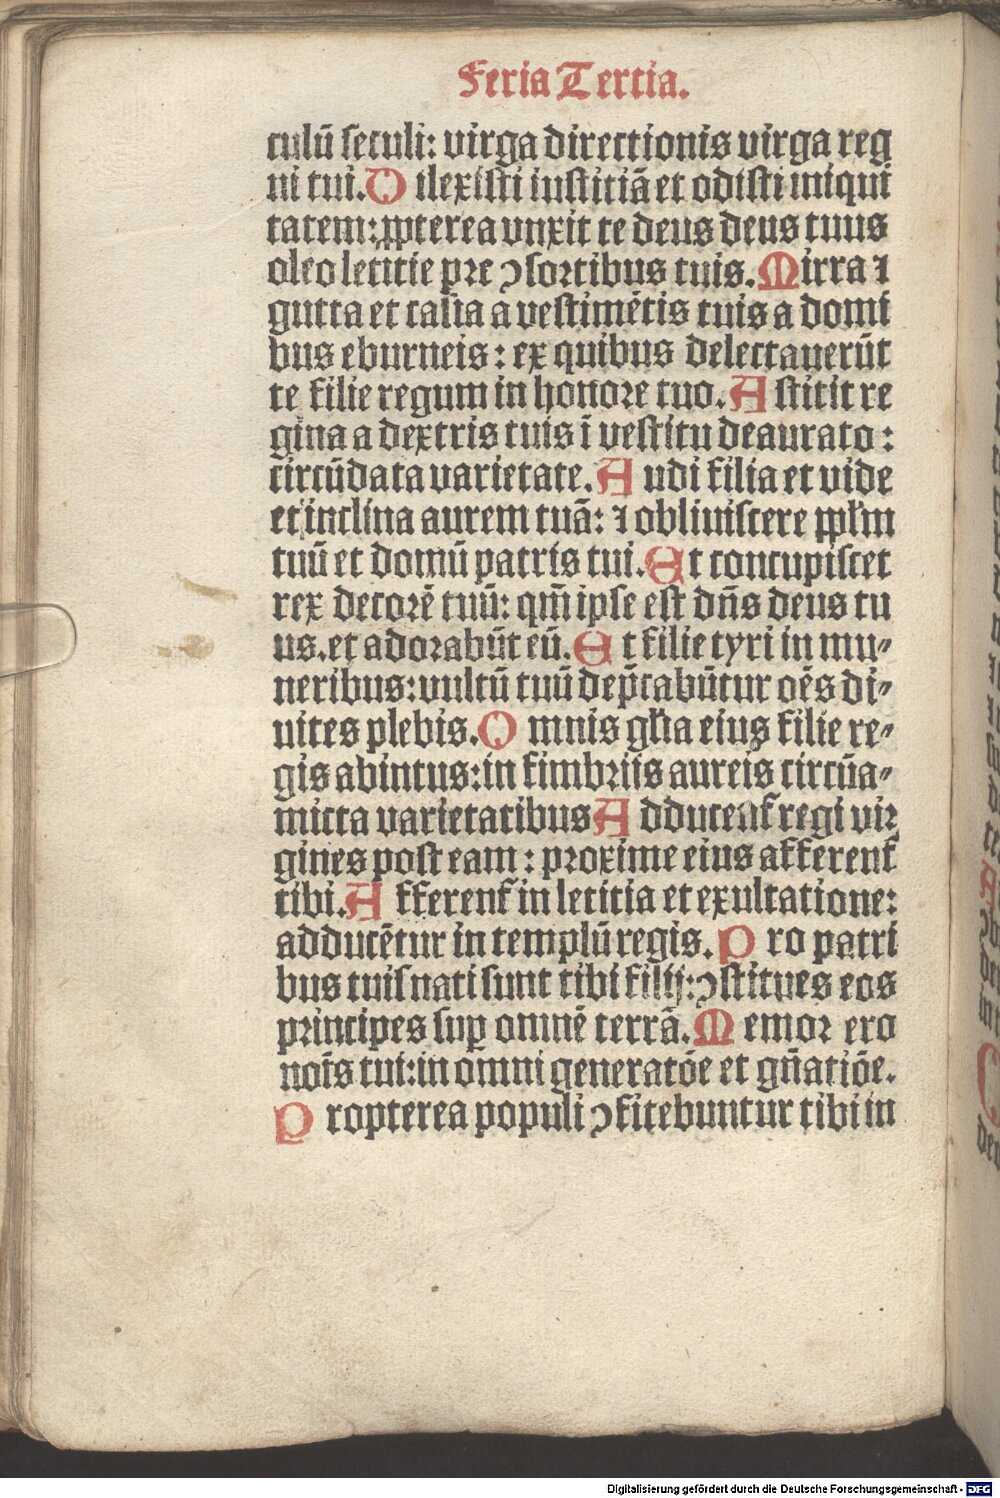 Feria Tertia.
culū seculi: virga directionis virga reg
ni tui. Dilexisti iusticiā et odisti iniqui
tatem: ꝓpterea vnxit te deus deus tuus
oleo leticie pre ↄsortibus tuis. Mirra ⁊
gutta et casia a vestimētis tuis a domi
bus eburneis: ex quibus delectauerūt
te filie regum in honore tuo. Astitit re
gina a dextris tuis ī vestitu deaurato:
circūdata varietate. Audi filia et vide
et inclina aurem tuā: ⁊ obliuiscere pplm̄
tuū et domū patris tui. Et concupiscet
rex decorē tuū: qm̄ ipse est dn̄s deus tu
us. et adorabūt eū. Et filie tyri in mu⸗
neribus: vultū tuū dep̄cabūtur oēs di⸗
uites plebis. Omnis gl̄ia eius filie re⸗
gis abintus: in fimbriis aureis circūa⸗
micta varietatibus Adducent᷑ regi vir
gines post eam: proxime eius afferent᷑
tibi. Afferent᷑ in leticia et exultatione:
adducētur in templū regis. Pro patri
bus tuis nati sunt tibi filij: ↄstitues eos
principes suꝑ omnē terrā. Memor ero
noīs tui: in omni generatōe et gn̄atiōe.
Propterea populi ↄfitebuntur tibi in
Digitalisierung gefördert durch die Deutsche Forschungsgemeinschaft - DFG